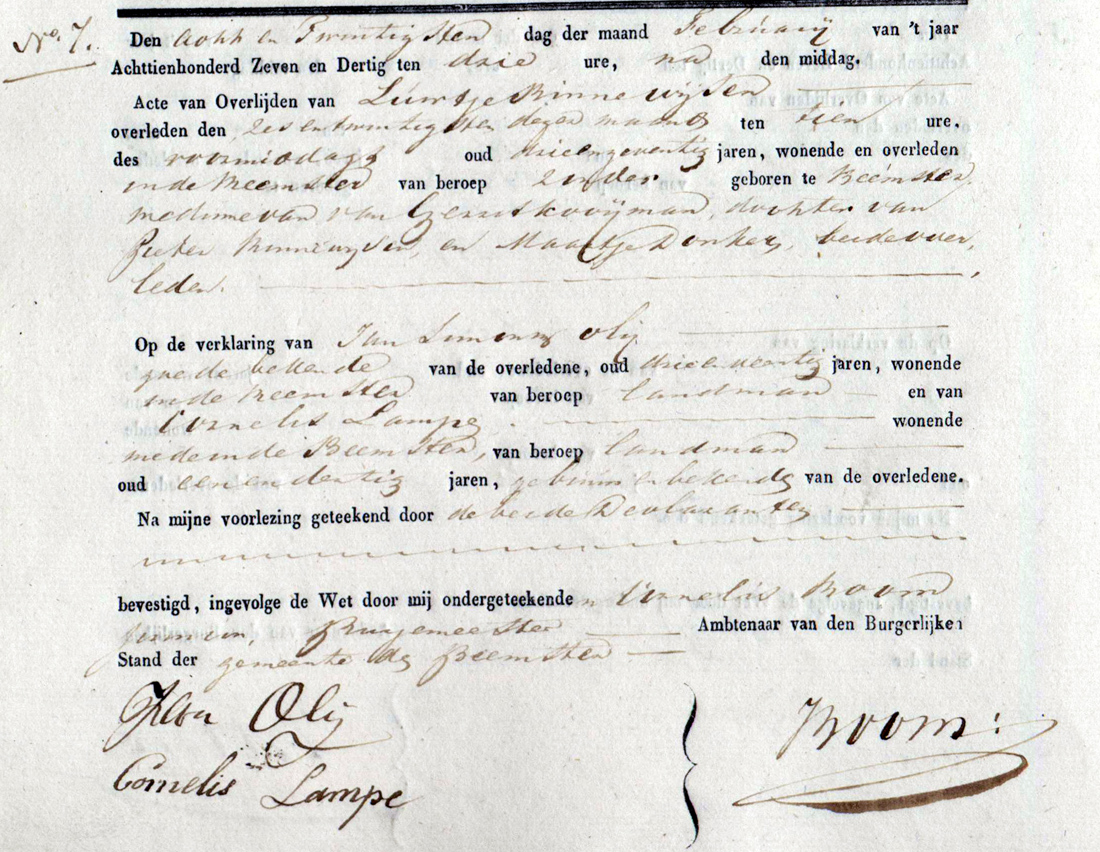 No. 7.
Den acht en Twintigsten dag der maand Februarij van 't jaar
Achttienhonderd Zeven en Dertig ten drie ure, na den middag.
Acte van Overlijden van Luurtje Binnewijsen
overleden den zes en twintigsten dezer maand ten tien ure.
des voormiddags oud drie en zeventig jaren, wonende en overleden
in de Beemster van beroep zonder geboren te Beemster,
weduwe van van Gerrit Kooijman, dochter van
Pieter Binnewijsen, en Maartje Donker, beide over,,
leden.
Op de verklaring van Jan Simonsz Olij
goede bekende van de overledene, oud jaren, wonende
in de Beemster van beroep landman en van
Cornelis Lampe wonende
mede in de Beemster, van beroep landman
oud een en dertig jaren, bekende van de overledene.
Na mijne voorlezing geteekend door de beide Declaranten
bevestigd, ingevolge de Wet door mij ondergeteekende Cornelis Boom
Burgemeester Ambtenaar van den Burgerlijken
Stand der gemeente de Beemster
Jan Olij
Cornelis Lampe
CBoom: